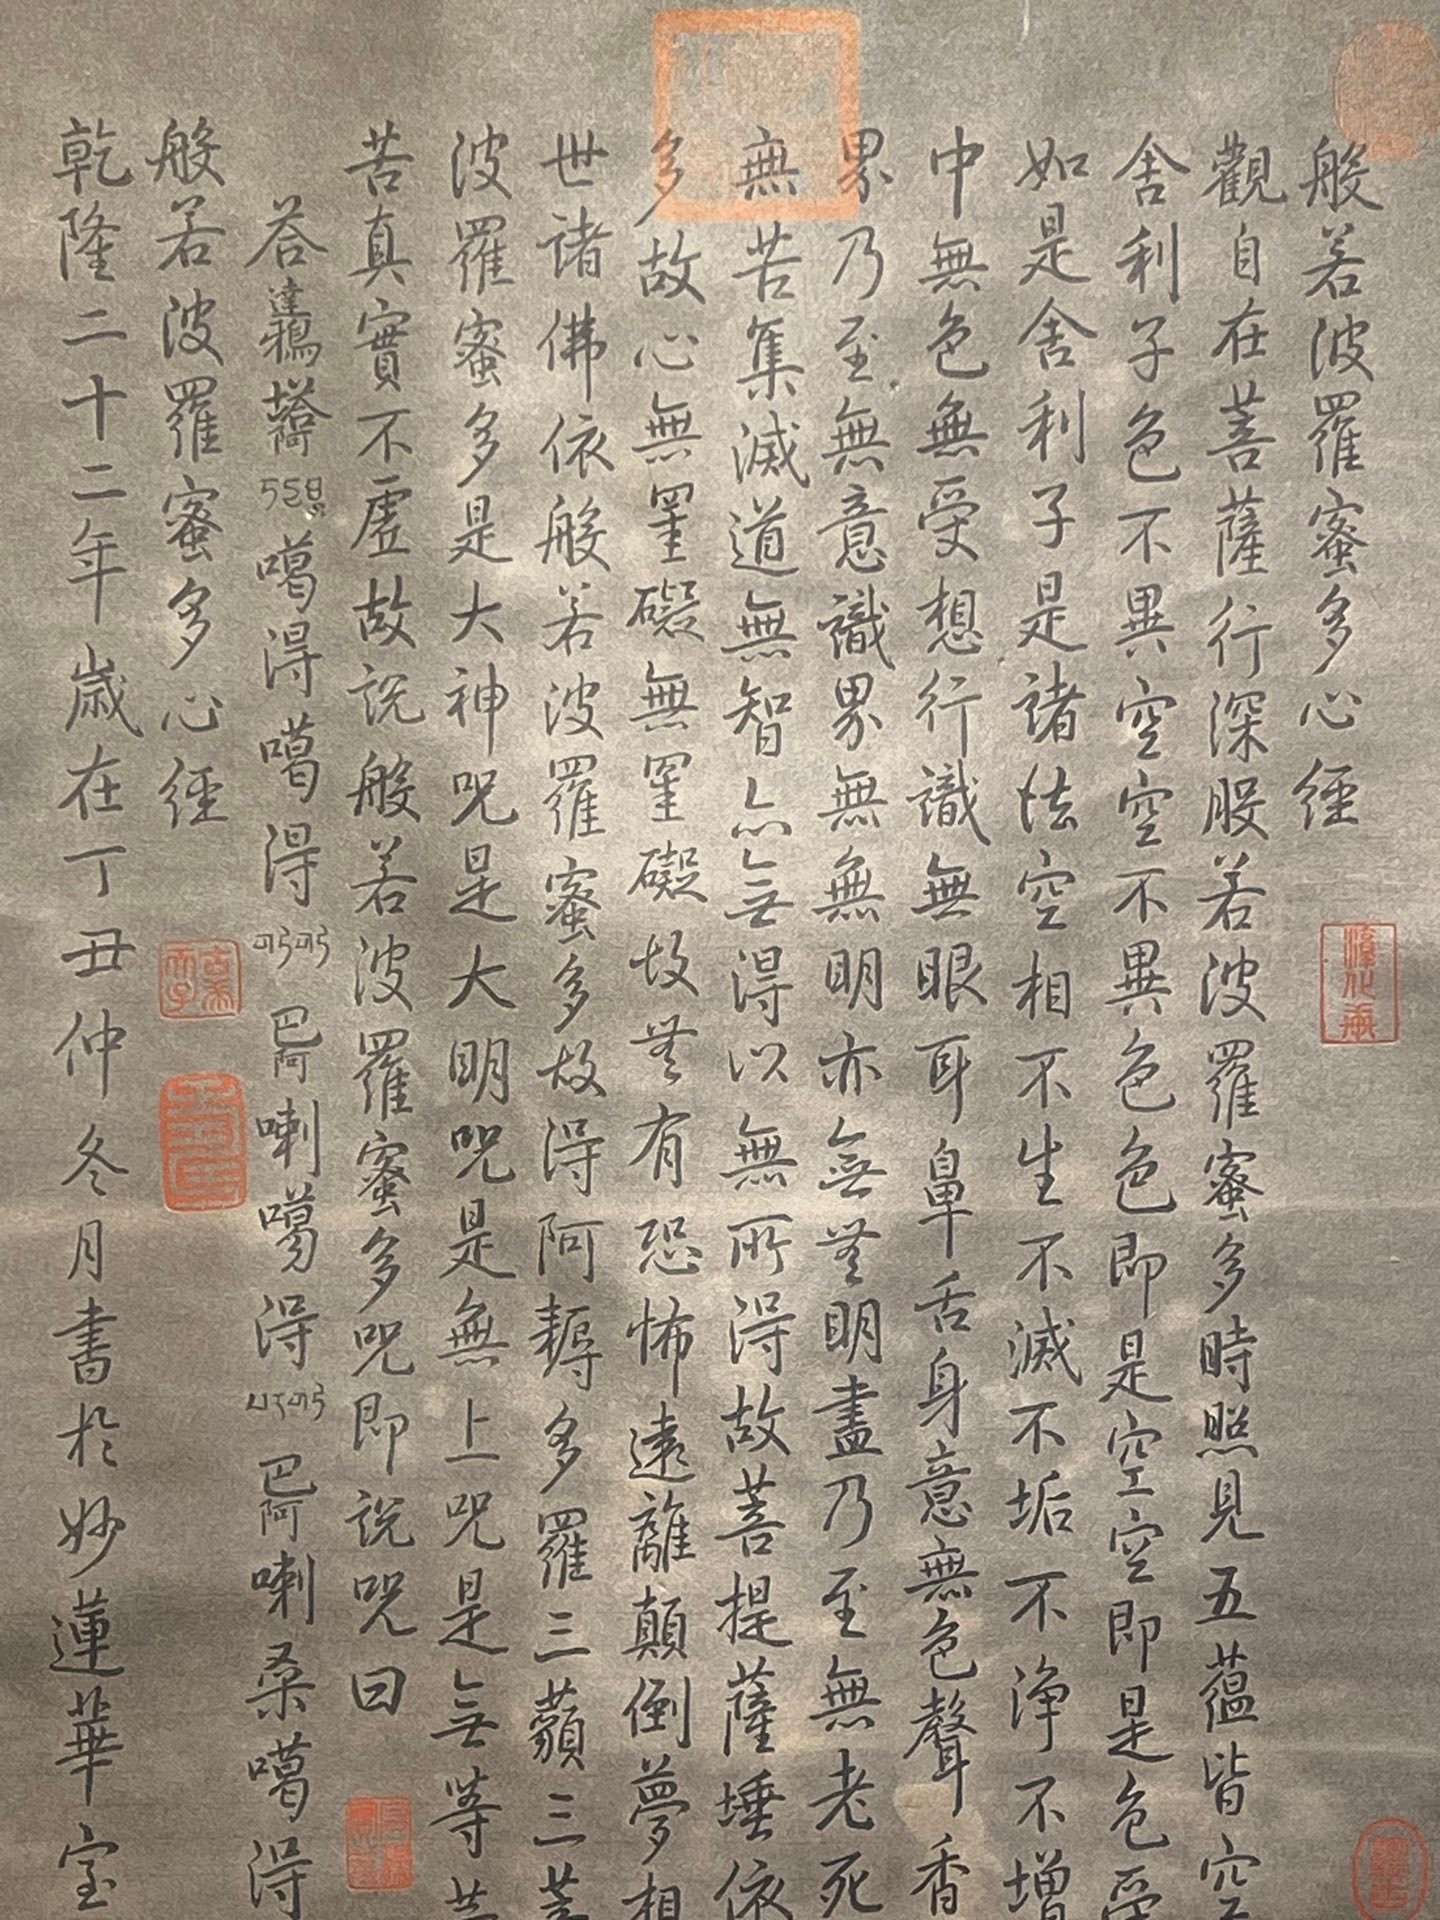 般若波羅蜜多心經
觀自在菩薩行深般若波羅蜜多時照見五蘊皆空
舍利子色不異空空不異色色即是空空即是色受
如是舍利子是諸法空相不生不滅不垢不淨不增
中無色無受想行識無眼耳鼻舌身意無色聲香
界乃至無意識界無無明亦無無明盡乃至無老死
無苦集滅道無智亦無得以無所得故菩提薩埵依
多故心無罣礙無罣礙故無有恐怖遠離顛倒夢想
世諸佛依般若波羅蜜多故得阿耨多羅三藐三菩
波羅蜜多是大神咒是大明咒是無上咒是無等等
苦真實不虛故說般若波羅蜜多咒即說咒曰
答達鴉塔噶得噶得巴阿喇噶得巴阿喇桑噶得
般若波羅蜜多心經
乾隆二十二年歲在丁丑仲冬月書於妙蓮華室